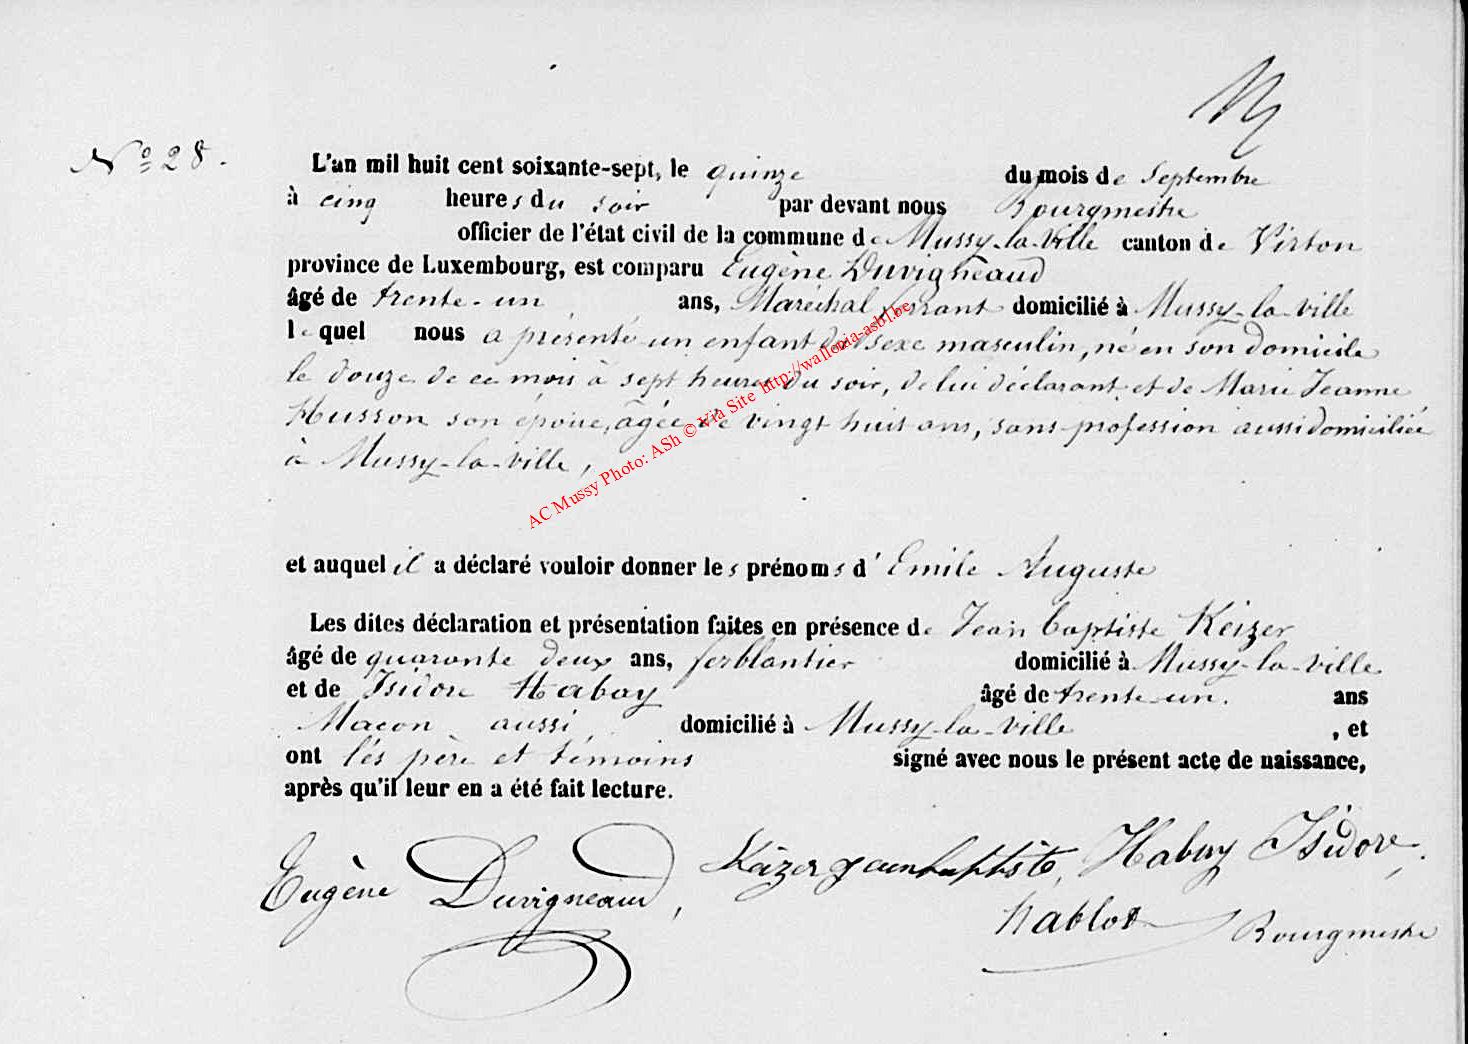 Nº 28.
L'an mil huit cent soixante-sept, le quinze du mois de Septembre
à cinq heures du soir par devant nous Bourgmestre
officier de l'état civil de la commune de Mussy-la-Ville canton de Virton
province de Luxembourg, est comparu Eugène Duvigneaud
âgé de trente-un ans, Maréchal ferrant domicilié à Mussy-la-ville
lequel nous a présenté un enfant du sexe masculin, né en son domicile
le douze de ce mois à sept heures du soir, de lui déclarant et de Marie Jeanne
Husson son épouse, âgée de vingt huit ans, sans profession aussi domiciliée
à Mussy-la-ville,
AC Mussy Photo: ASh © Via Site http://wallonia-asbl.be
et auquel il a déclaré vouloir donner les prénoms d'Emile Auguste
Les dites déclaration et présentation faites en présence de Jean baptiste Keizer
âgé de quarante deux ans, ferblantier domicilié à Mussy-la-ville
et de Isidore Habay âgé de trente-un. ans
Maçon aussi, domicilié à Mussy-la-ville, et
ont les père et témoins signé avec nous le présent acte de naissance,
après qu'il leur en a été fait lecture.
Eugène Duvigneaud, Kaizer jeanbaptiste, Habay Isidore,
Nablot Bourgmestre